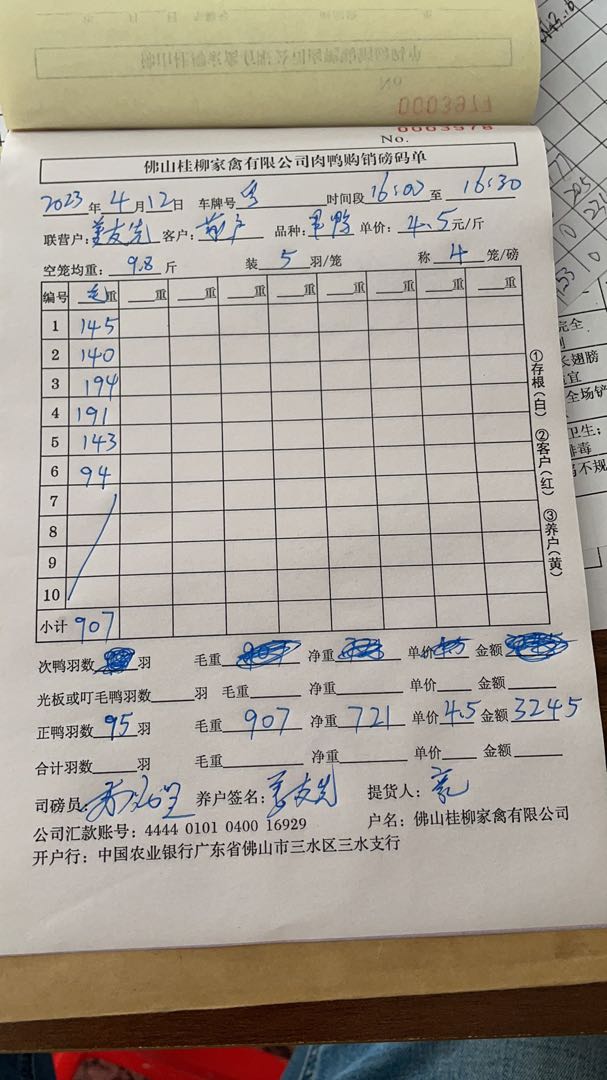 0003977
0003978
No.
佛山桂柳家禽有限公司肉鸭购销磅码单
2023年4月12日 车牌号 时间段16:00至16:30
联营户:姜友先 客户: 品种: 鸭 单价:4.5元/斤
空笼均重:9.8斤 装5羽/笼 称4笼/磅
编号 毛重 重 重 重 重 重 重 重
1 145
2 140
3 194
4 191
5 143
6 94
7
8
9
10
小计 907
①存根(白) ②客户(红) ③养户(黄)
次鸭羽数 羽 毛重 净重 单价 金额
光板或叮毛鸭羽数 羽 毛重 净重 单价 金额
正鸭羽数95羽 毛重907 净重721 单价4.5 金额3245
合计羽数 羽 毛重 净重 单价 金额
司磅员: 养户签名:姜友先 提货人:
公司汇款账号: 4444 0101 0400 16929 户名: 佛山桂柳家禽有限公司
开户行: 中国农业银行广东省佛山市三水区三水支行